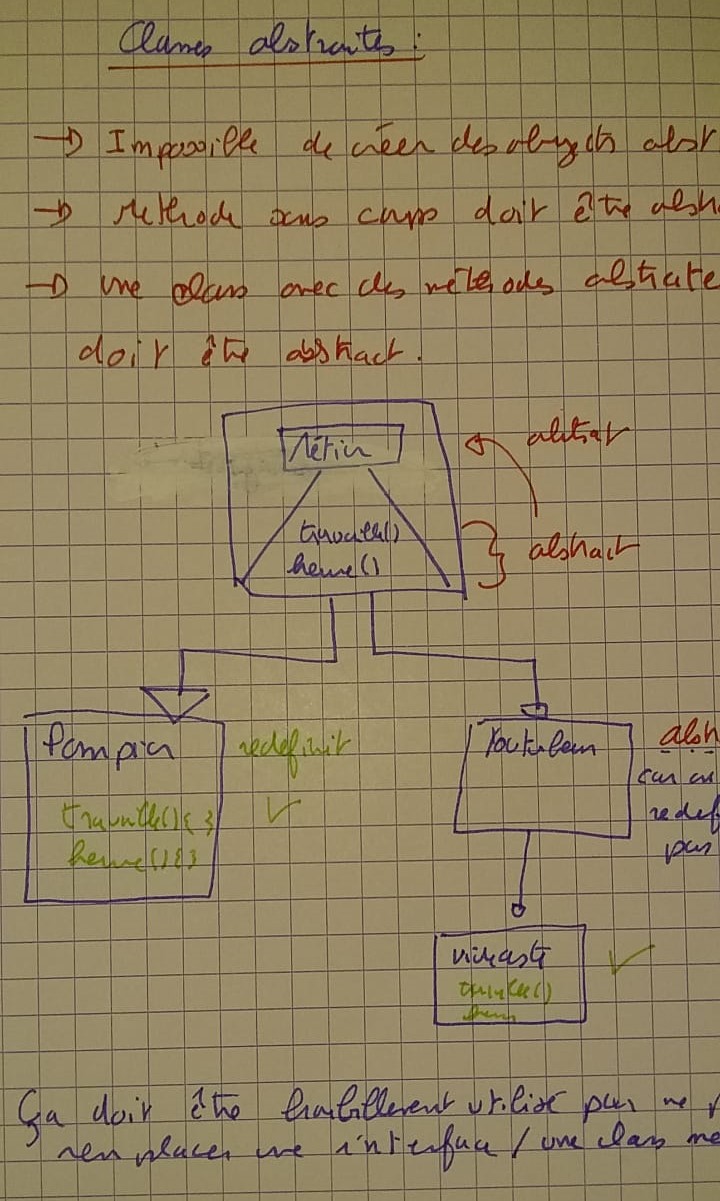 Classes abstraites :
→ Impossible de créer des objects abstr
→ Methode sans corps doit être abstr
→ une class avec des méthodes abstraite
doit être abstract.
Métier
abstrat
travaille()
heure()
abstract
Pompier
redefinit
Youtubeur
abstr
car on
redef
pas
travaille(){}
heure(){}
vidéaste
travaille()
heure
Ça doit être habillement utilisé pour ne
remplacer une interface / une class mè